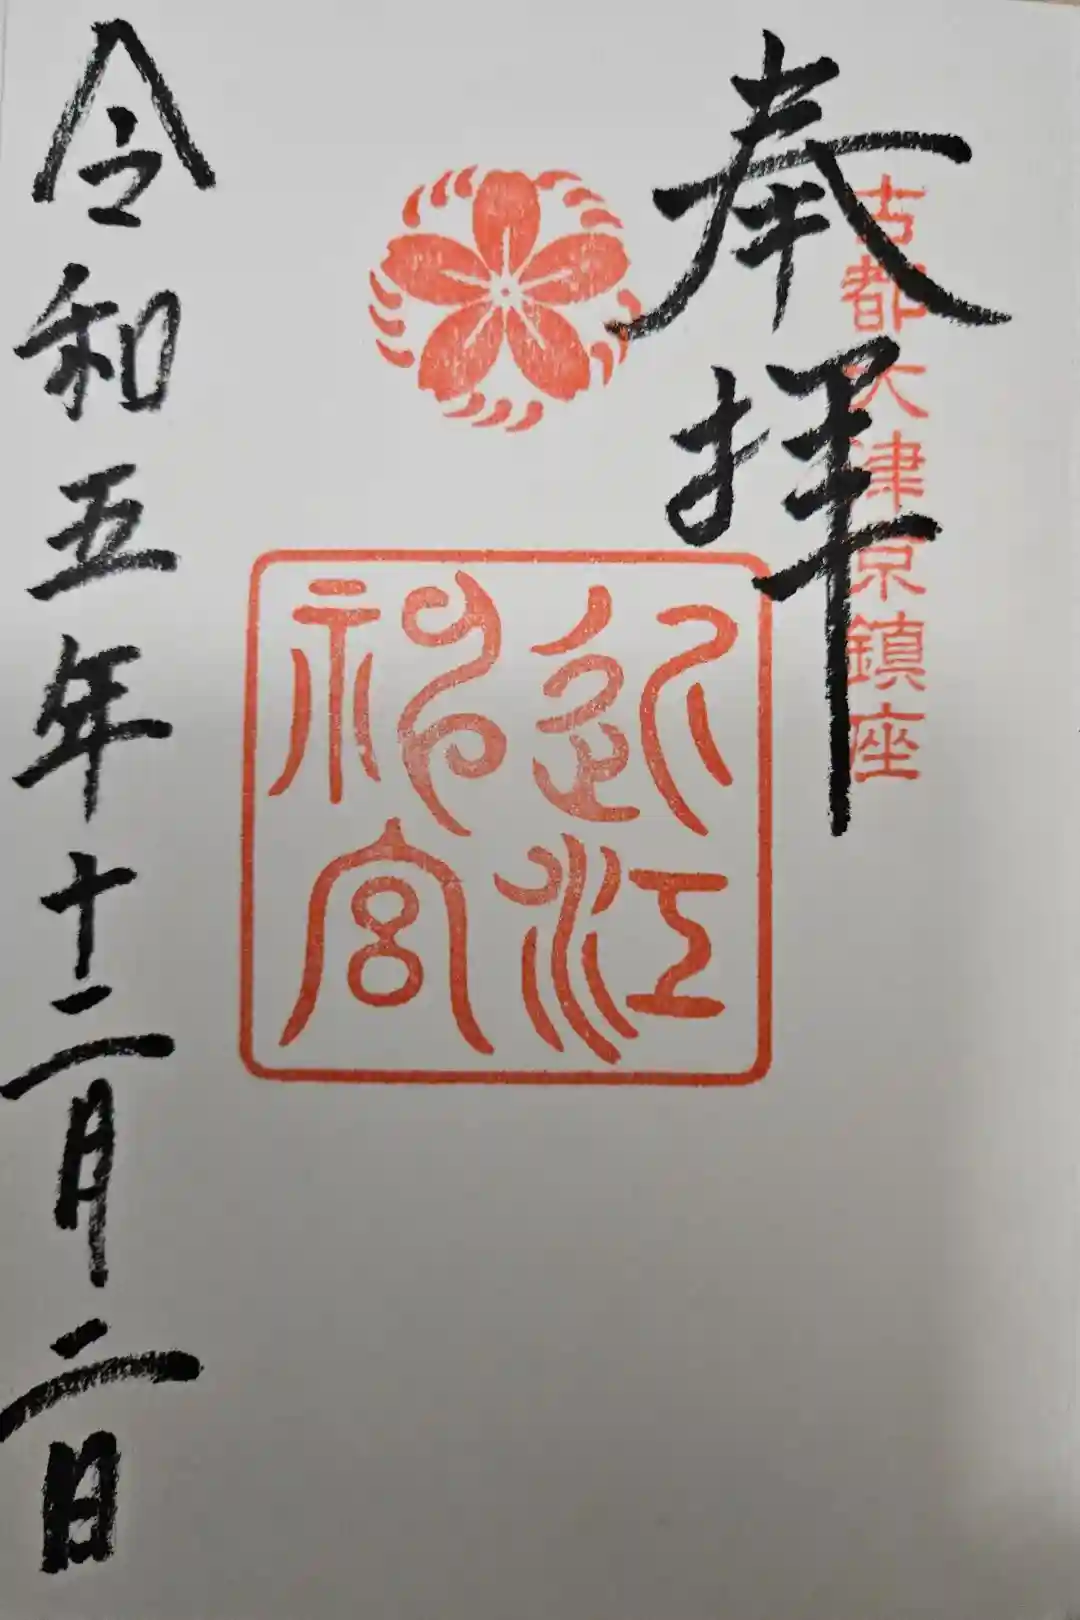 奉拝
古都大津京鎮座
近江
神宮
令和五年十二月二日